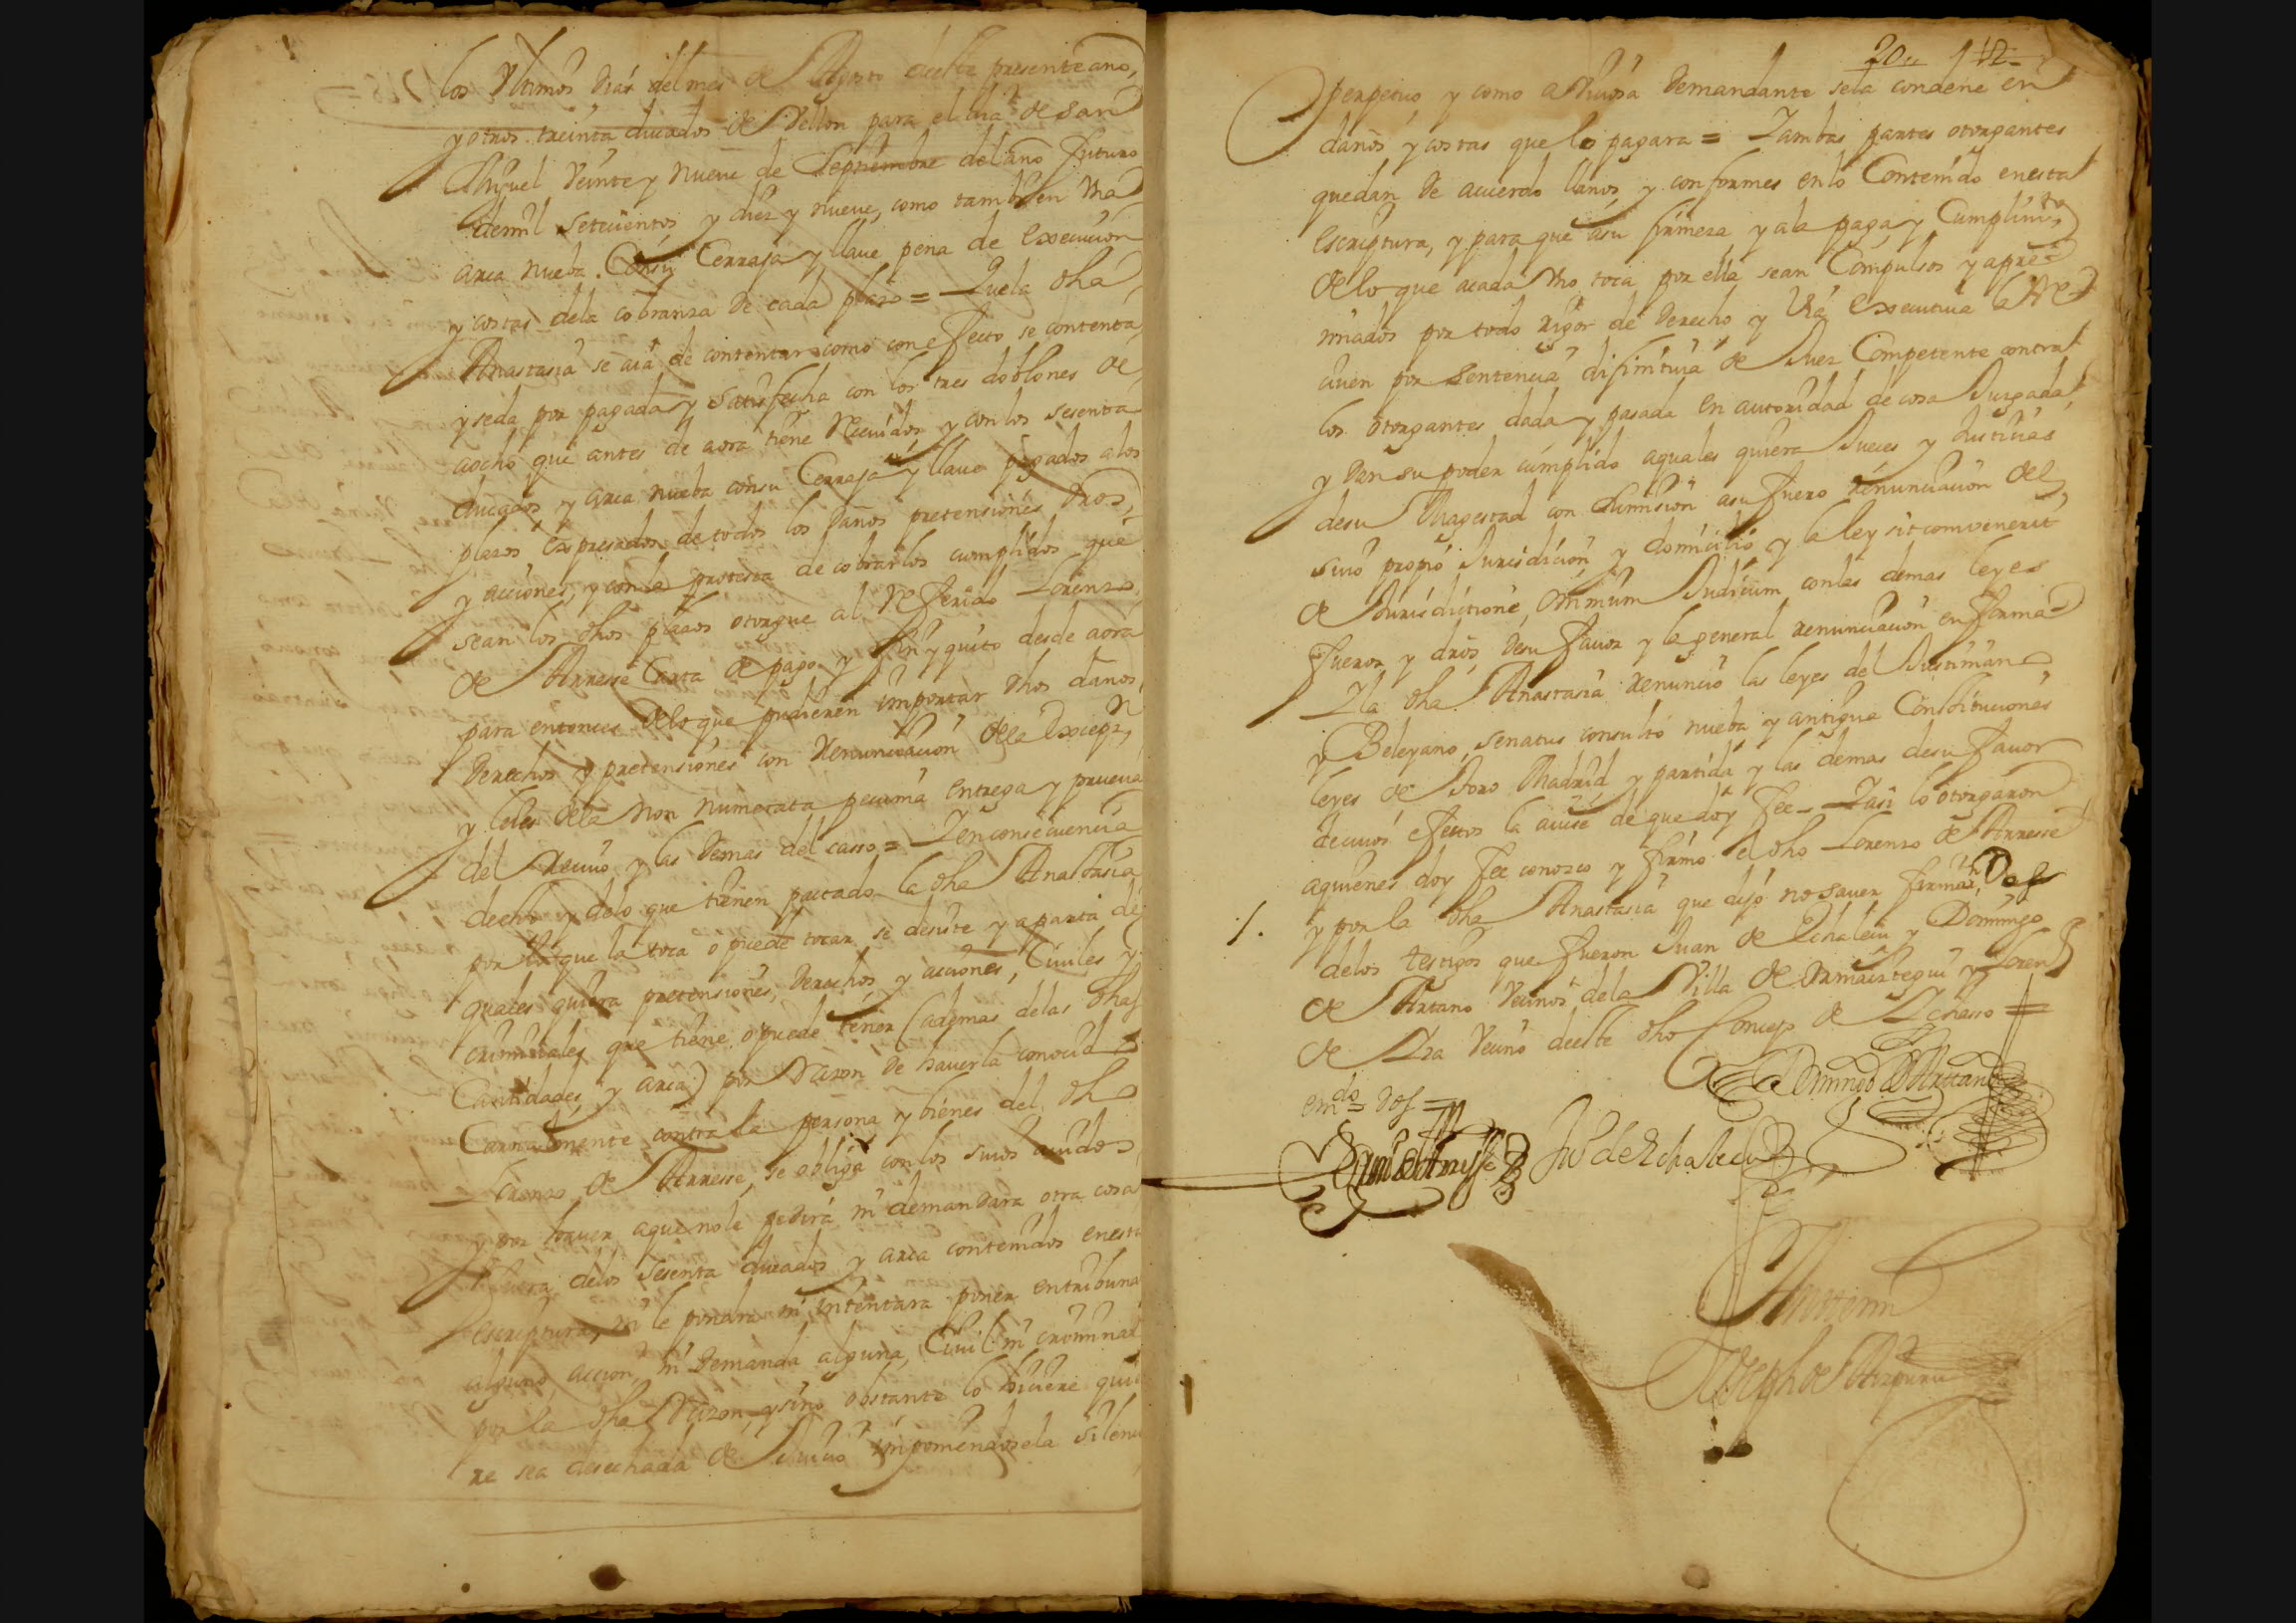 los Ultimos dias del mes de Agosto deeste presente año,
y otros treinta ducados de Vellon para el dia de San
Miguel Veinte y nueve de Septiembre del año futuro
de mil setecientos y diez y nueve, como tambien Vna
arca nueba Consu Cerraja y llaue pena de execucion
y costas dela cobranza de cada plazo = Quela dha
Anastasia se aia de contentar como con efecto se contenta
y se da por pagada y satisfecha con los tres doblones de
aocho que antes de aora tiene Recividos y con los sesenta
ducados y arca nueba consu Cerraja y llaue pagados alos
plazos expresados de todos los daños pretensiones dros,
y acciones, y con la protesta de cobrarlos cumplidos que
sean los dhos plazos otorgue al Referido Lorenzo
de Arresse Carta de pago y fin y quito desde aora
para entonces delo que pudieren importar dhos daños,
derechos y pretensiones con Renunciacion dela Excepn
y leies dela non numerata pecunia entrega y prueua
del Reciuo y las demas del casso = Y en consecuencia
deello y delo que tienen pactado la dha Anastasia
por lo que la toca o puede tocar, se desiste y aparta de
quales quiera pretensiones, derechos y acciones, Ciuiles y
criminales que tiene, o puede tener (ademas delas dhas
Cantidades y arca) por Razon de hauerla conocido
Carnalmente contra la persona y bienes del dho
Lorenzo de Arresse, se obliga con los suios auidos
y por hauer aque nole pedira ni demandara otra cosa
fuera delos sesenta ducados y arca contenidos enesta
escriptura, ni le pondra ni intentara poner entribunal
alguno, accion, ni demanda alguna, Ciuil ni criminal
por la dha Razon, y sino obstante lo hiciere quie
re sea desechada de Juicio imponiendosela silenci
20 112
perpetuo y como a Viciosa demandante sela condene en
daños y costas que los pagara = Y ambas partes otorgantes
quedan de acuerdo llanos, y conformes enlo Contenido enesta
escriptura, y para que asu firmeza y ala paga y Cumplimto
delo que acada Vno toca por ella sean Compulsos y apre=
miados por todo rigor de derecho y Via executiua la Re=
ciuen por Sentencia difinitiua de Juez Competente contra
los otorgantes dada y pasada en autoridad de cosa Juzgada
y dan su poder cumplido aquales quiera Jueces y Justicias
desu Magestad con Sumision asu fuero renunciacion del
suio propio Jurisdicion y domicilio y la ley sit convenerit
de Jurisdictione, Omnium Judicum conlas demas leyes
fueros y dros desu fauor y la general renunciacion en forma
Y la dha Anastasia renuncio las leyes del Justiniano
y Beleyano, senatus consulto nueba y antigua Constituciones
leyes de Toro Madrid y partida y las demas desu fauor
decuios efectos la auise de que doy fee = Y asi lo otorgaron
aquienes doy fee conozco y firmo el dho Lorenzo de Arresse
y por la dha Anastasia que dijo no sauer firmar, Dos
delos testigos que fueron Juan de Echalecu y Domingo
de Artano Vecinos dela Villa de Ormaiztegui y Loren
de Vecino deeste dho Concejo de Ychasso =
emdo = Dos =
Domingo de Arttano
Lorenzo de Arresse Juo de Echalecu
Antemi
Joseph de Aizpuru